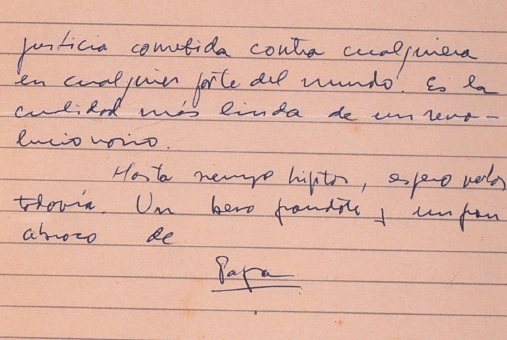 justicia cometida contra cualquiera
en cualquier parte del mundo. Es la
cualidad más linda de un revo-
lucionario.
Hasta siempre hijitos, espero verlos
todavía. Un beso grandote y un gran
abrazo de
Papá